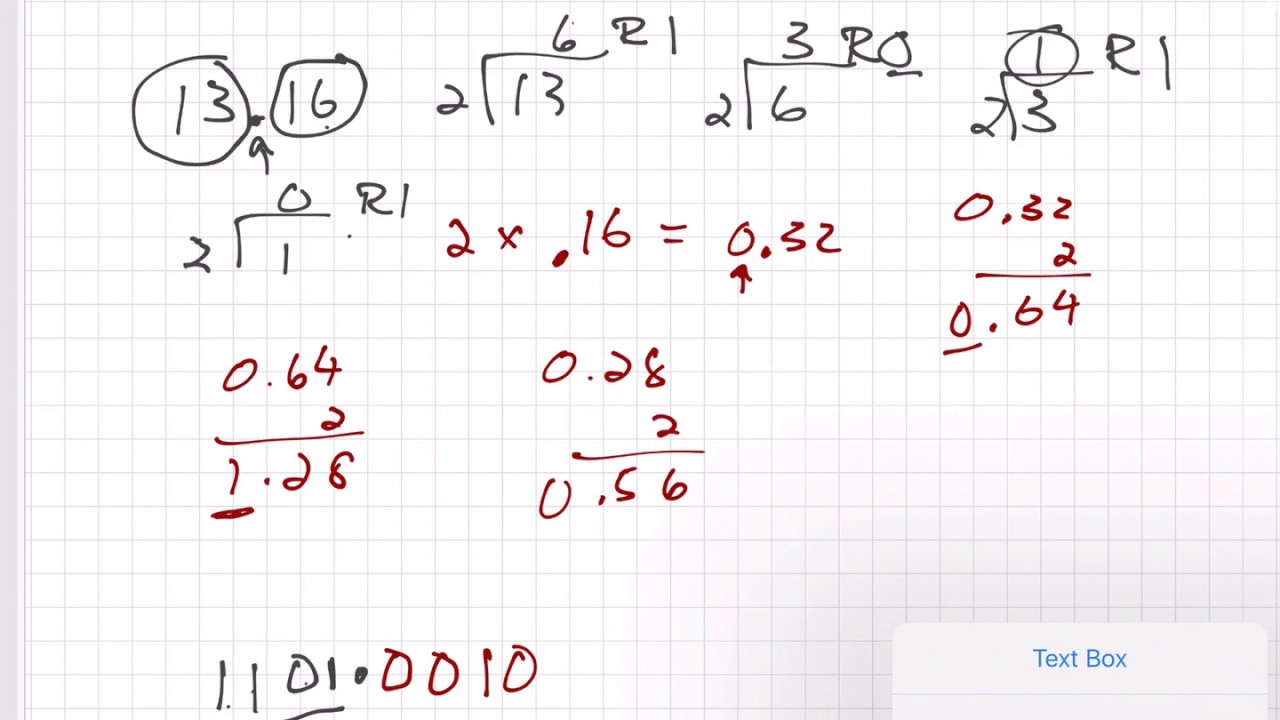 13.16
6 R1
2 13
3 R0
2 6
1 R1
2 3
0 R1
2 1
2 × .16 = 0.32
0.32
2
0.64
0.64
2
1.28
0.28
2
0.56
1101.0010
Text Box